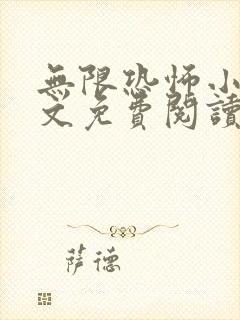 無限恐怖小
文免費閱讀
萨德